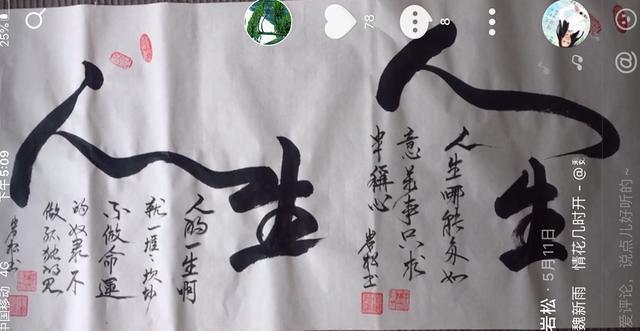 25%
下午5:09
中国移动 4G
78
8
人生
人生哪能多如
意万事只求
半稱心
岩松书
人生
人的一生啊
就一堆
不做命運
的奴隶不
做孤独的
岩松书
岩松 · 5月11日
魏新雨 情花几时开 - @
爱评论，说点儿好听的~
@